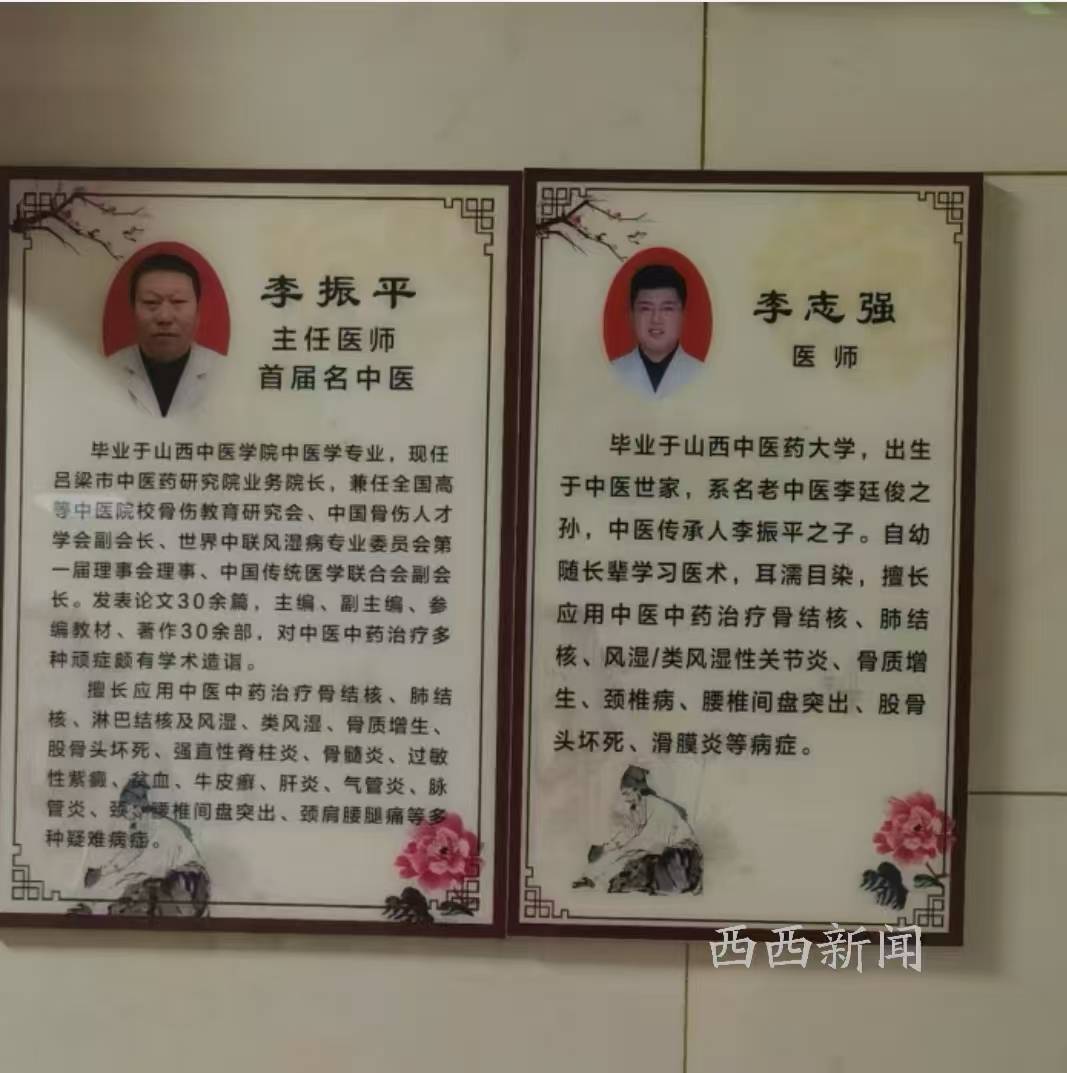 李振平
主任医师
首届名中医
毕业于山西中医学院中医学专业，现任
吕梁市中医药研究院业务院长，兼任全国高
等中医院校骨伤教育研究会、中国骨伤人才
学会副会长、世界中联风湿病专业委员会第
一届理事会理事、中国传统医学联合会副会
长。发表论文30余篇，主编、副主编、参
编教材、著作30余部，对中医中药治疗多
种顽症颇有学术造诣。
擅长应用中医中药治疗骨结核、肺结
核、淋巴结核及风湿、类风湿、骨质增生、
股骨头坏死、强直性脊柱炎、骨髓炎、过敏
性紫癜、贫血、牛皮癣、肝炎、气管炎、脉
管炎、颈、腰椎间盘突出、颈肩腰腿痛等多
种疑难病症。
李志强
医师
毕业于山西中医药大学，出生
于中医世家，系名老中医李廷俊之
孙，中医传承人李振平之子。自幼
随长辈学习医术，耳濡目染，擅长
应用中医中药治疗骨结核、肺结
核、风湿/类风湿性关节炎、骨质增
生、颈椎病、腰椎间盘突出、股骨
头坏死、滑膜炎等病症。
西西新闻